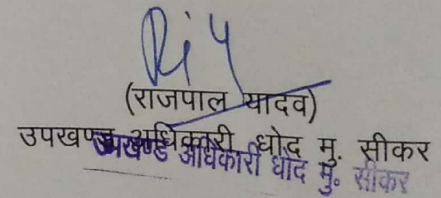 (राजपाल यादव)
उपखण्ड अधिकारी धोद मु. सीकर
उपखण्ड अधिकारी धोद मु० सीकर